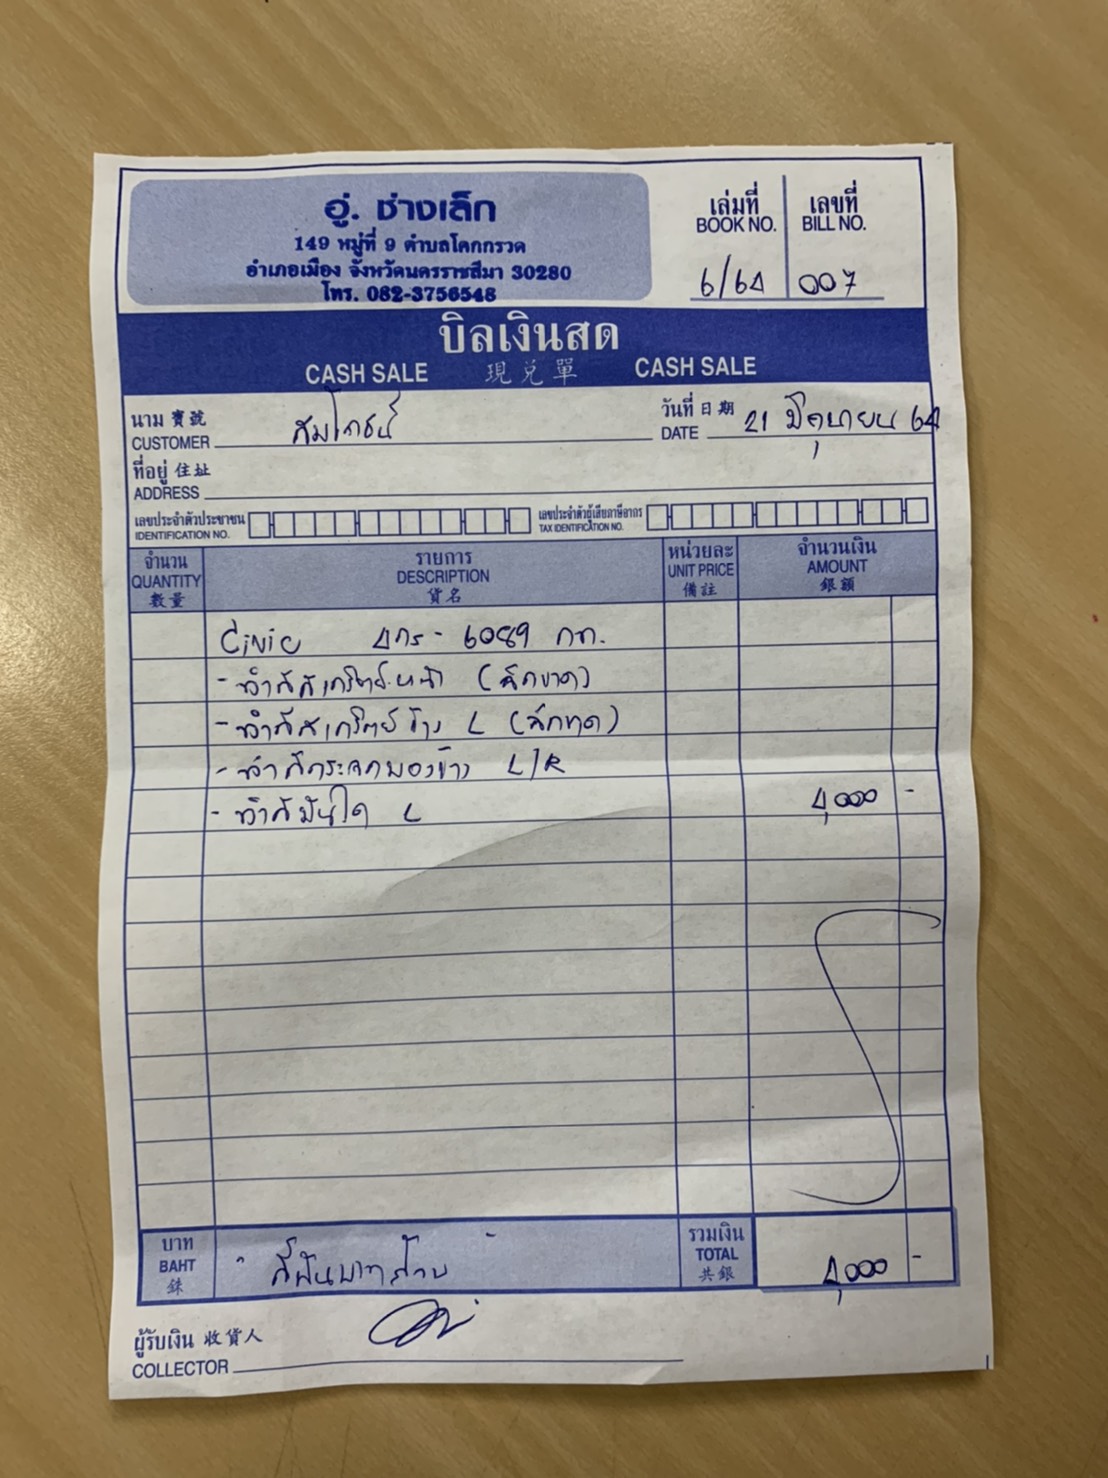 อู่. ช่างเล็ก
149 หมู่ที่ 9 ตำบลโคกกรวด
อำเภอเมือง จังหวัดนครราชสีมา 30280
โทร. 082-3756548
เล่มที่ เลขที่
BOOK NO. BILL NO.
6/64 007
บิลเงินสด
CASH SALE 現兌單 CASH SALE
นาม 寶號 วันที่ 日期
CUSTOMER สมโภชน์ DATE 21 มิถุนายน 64
ที่อยู่ 住址
ADDRESS
เลขประจำตัวประชาชน เลขประจำตัวผู้เสียภาษีอากร
IDENTIFICATION NO. TAX IDENTIFICATION NO.
จำนวน รายการ หน่วยละ จำนวนเงิน
QUANTITY DESCRIPTION UNIT PRICE AMOUNT
數量 貨名 備註 銀額
Civic 4กร - 6089 กท.
- ทำสีสเกิร์ตหน้า
- ทำสีสเกิร์ตข้าง L
- ทำสีกระจกมองข้าง L/R
- ทำสีบันได L 4,000 -
บาท รวมเงิน
BAHT สี่พันบาทถ้วน TOTAL 4,000 -
銖 共銀
ผู้รับเงิน 收貨人
COLLECTOR